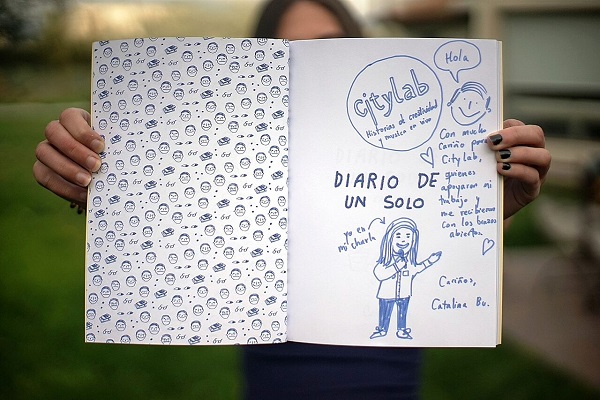 Hola
citylab
Historias de creatividad
y musica en vivo
DIARIO DE
UN SOLO
Con mucho
cariño para
Citylab,
quienes
apoyaron mi
trabajo y
me recibieron
con los brazos
abiertos.
yo en
mi charla
Cariños,
Catalina Bu.